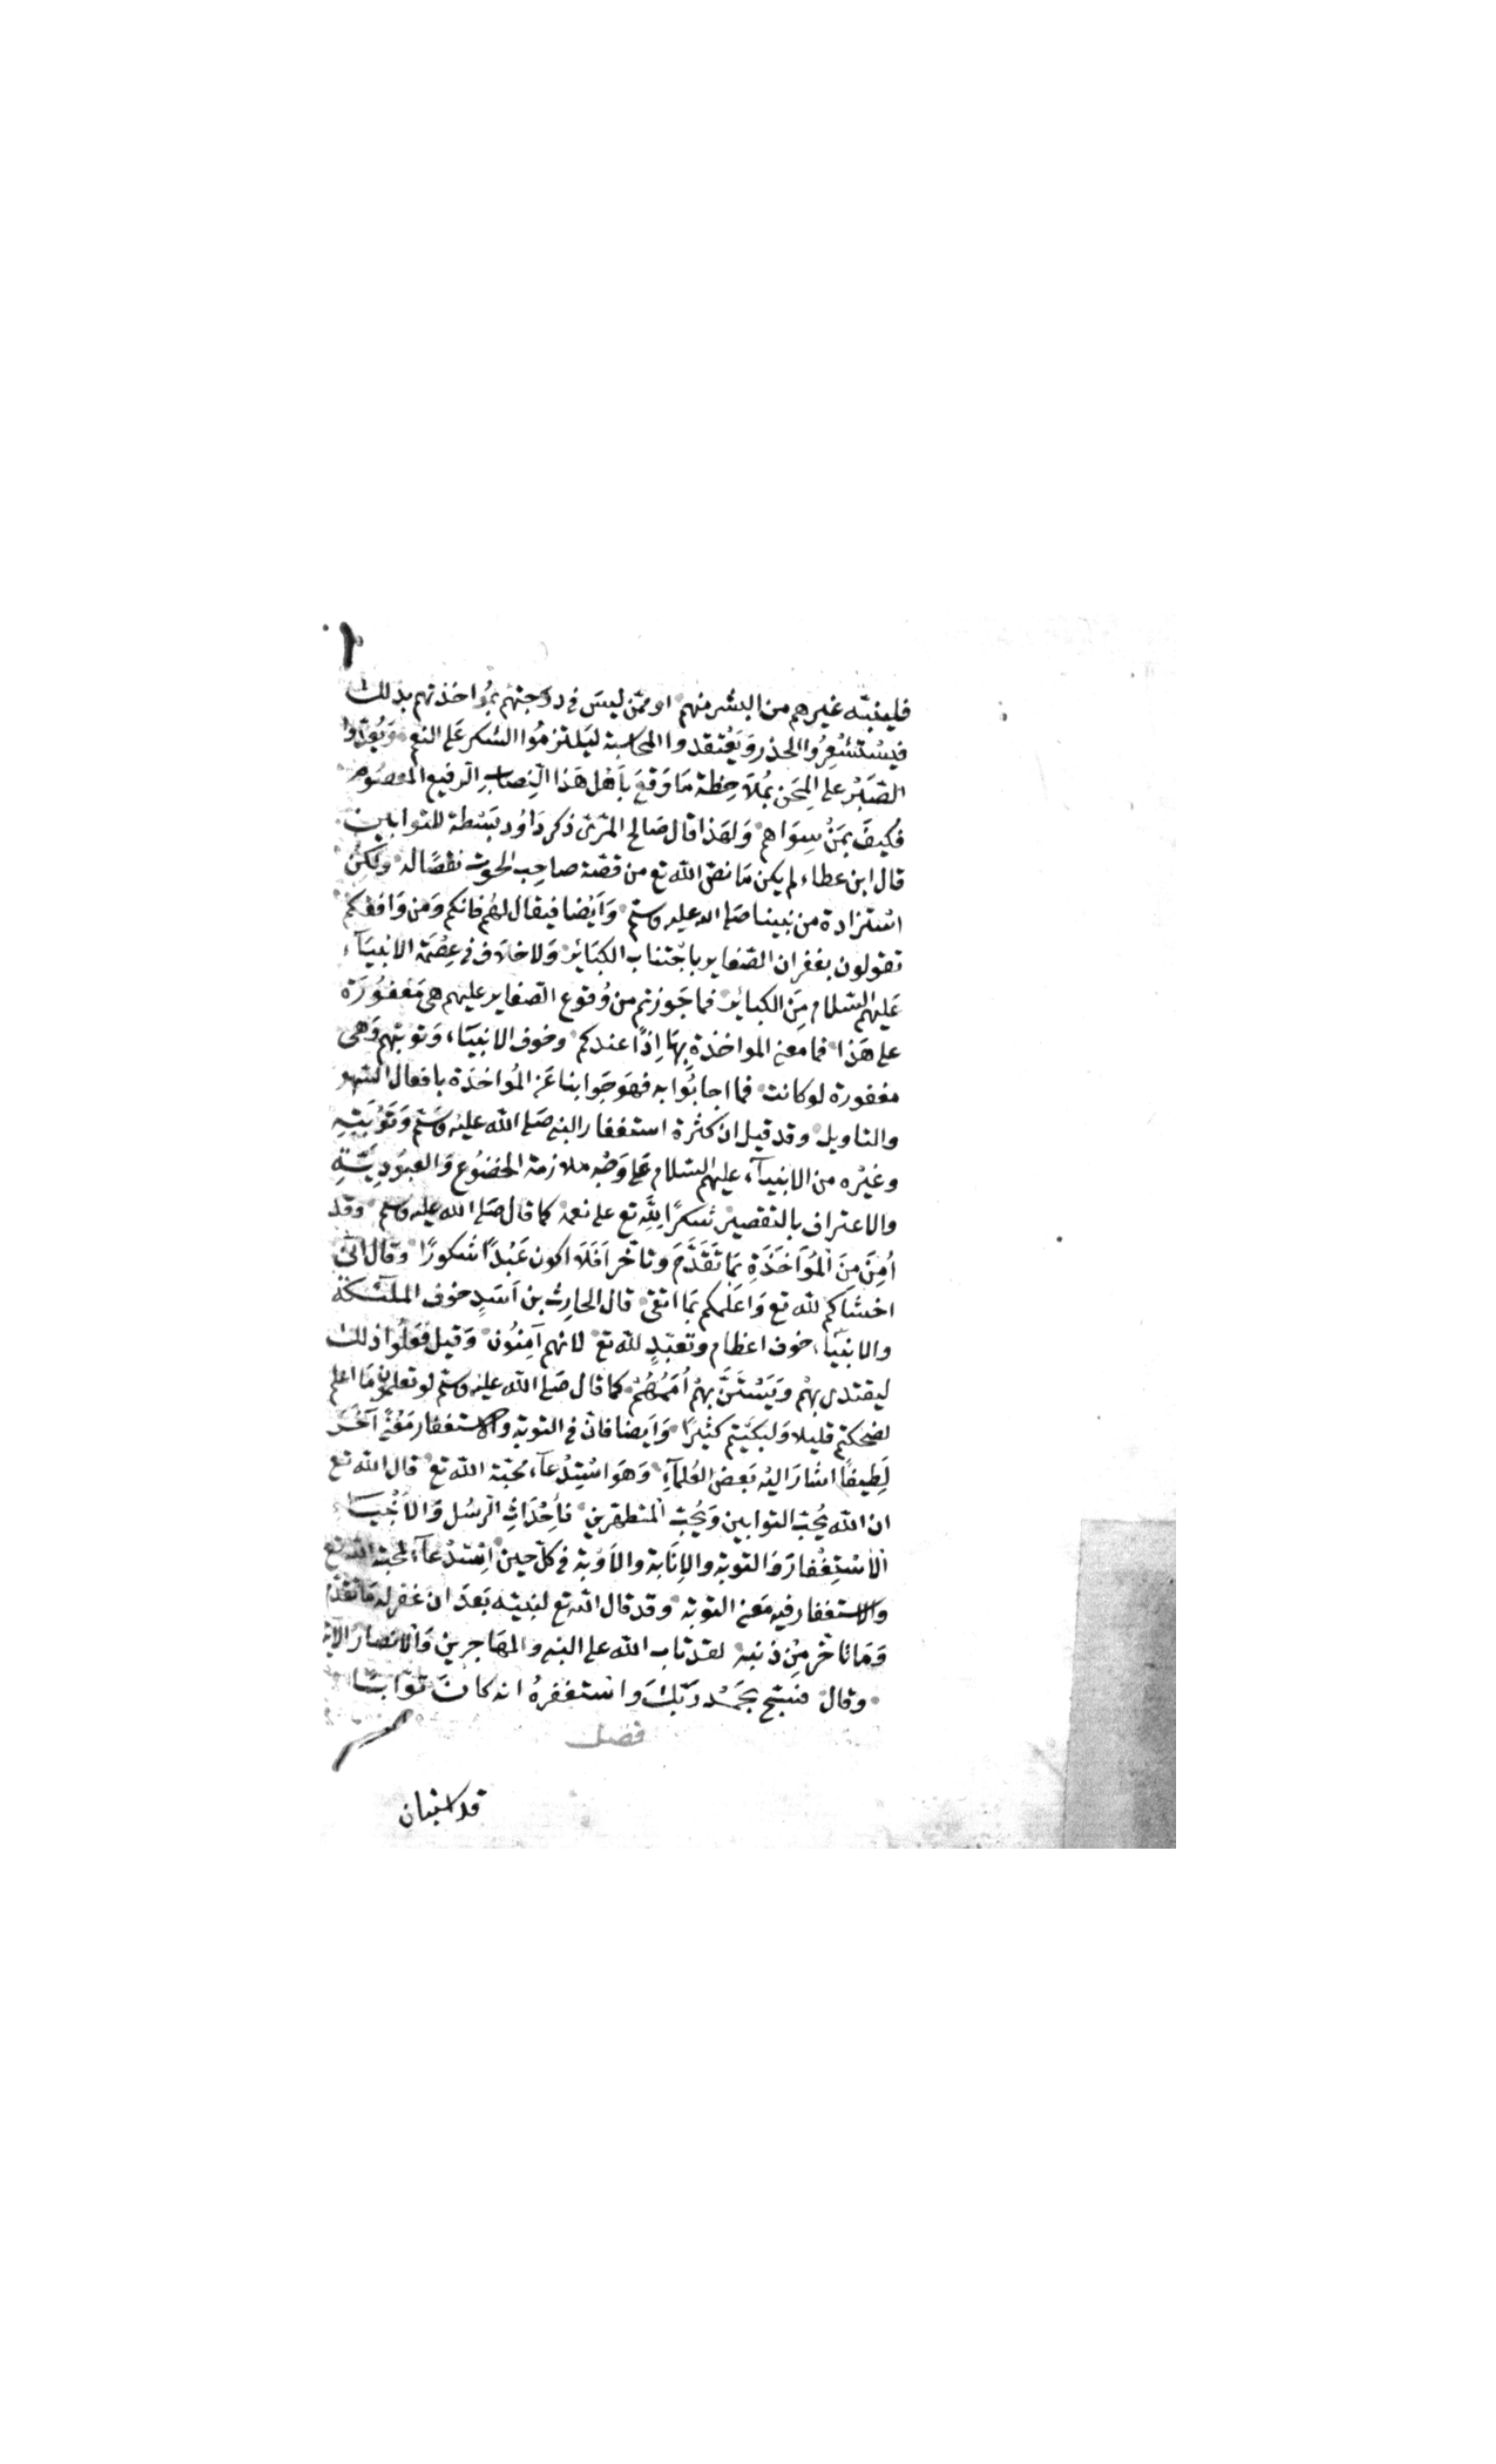 فلينبّه غيرهم من البشر منهم او ممّن ليسَ في درجتهم بمُؤاخذتهم بذلك
فيسْتشْعِرُوا الحذر وَيَعْتقدوا المحاسبة ليَلتزمُوا الشكر عَلى النعم وَيُعِدّوا
الصَّبْر على المِحَن بمُلاَحِظة مَا وَقعَ بأهْل هَذا النِّصابِ الرفيع المعصُوم
فكيفَ بمَنْ سِوَاهم وَلهذا قال صَالح المرّىّ ذكر دَاوُد بَسْطة للتوابين
قال ابن عطاء لم يكن مَا نصّ الله تع من قصّة صاحِب الحوت نقصًا له ولكِنْ
اسْتزادة من نبينا صَلى الله عليه وسلم وَأيْضا فيقال لهُم فانكم وَمن وَافقكم
تقولون بغفران الصّغاير باجْتناب الكبَائر وَلا خلاَف في عِصْمَة الانبيَآء
عَليْهم السّلام مِنَ الكبائر فما جَوزتم من وُقوع الصّغاير عليهم هى مَغفُورَة
على هَذا فما مَعنى المواخذة بهَا إذًا عندكم وخوف الانبيَاء وَتوبتهم وَهى
مغفورة لو كانت فما اجابُوا به فهوَ جَوابنا عَن المُؤاخذَة بافعال السّهو
والتاويل وقد قيل انّ كثْرة استغفار النبى صَلى الله عليْه وسَلم وَتَوْبَتِهِ
وغيْره من الانبيآء عليهم السّلام عَلى وَجْه ملازمة الخضُوع وَالعبُودِيَّةِ
والاعتراف بالتقصير شكرًا لِلَّهِ تع على نعمه كما قال صَلى الله عليه وسلم وَقد
اُمِنَ مِنَ الْمُؤَاخَذَةِ بمَا تَقَدَّمَ وتأخر اَفَلَا اكون عَبْدًا شكورًا وقال انّى
اخشاكم لله تع وَاعلمكم بمَا اتقى قال الحارِث بن اَسَدٍ خوف الملٓئكة
والانبيَاء خوف اعظام وتعبّدٍ لله تع لانهم آمِنُون وَقيل فَعَلُوا ذلك
ليقتدى بهْم وَيَسْتَنَّ بهمْ اُمَمُهُمْ كما قال صَلى الله عليه وسلم لو تعلمون مَا اعلم
لضحكتم قليلا وَلبكيْتم كثيرًا وَأيضا فانّ فى التوبة والاستغفار مَعْنًى آخَر
لَطِيفًا اشارَ اليْه بَعض العُلمآءِ وَهوَ اسْتِدْعَآء مَحَبّة الله تع قال الله تع
ان الله يُحبّ التوابين وَيُحِبّ المتطهرين فَإِحْدَاثِ الرسُل وَالاَنْبِيَاء
الاسْتِغْفَارَ وَالتوبة والإنَابة والاَوْبة فى كلّ حين اسْتِدْعَآء لمحبّة الله تع
والاستغفار فيه مَعنى التوبة وقد قال الله تع لنبيّه بَعدَ ان غفر له مَا تقدّم
وَمَا تأخّر مِنْ ذنبه لقد تاب الله على النبى والمهَاجرين وَالانصَار الآية
وقال فسَبّح بحَمْد رَبّكَ واسْتغفرهُ انه كانَ توّابًا
فصل
قد استبان